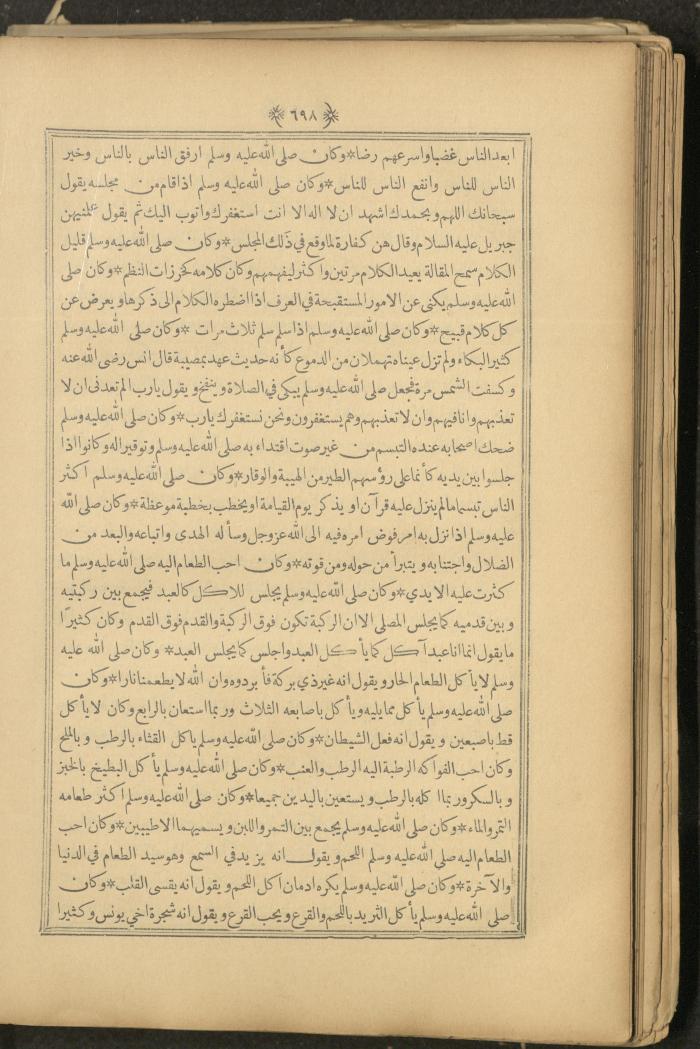 ٦٩٨
ابعد الناس غضبا واسرعهم رضا*وكان صلى الله عليه وسلم ارفق الناس بالناس وخير
الناس للناس وانفع الناس للناس*وكان صلى الله عليه وسلم اذا قام من مجلسه يقول
سبحانك اللهم وبحمدك اشهد ان لا اله الا انت استغفرك واتوب اليك ثم يقول علمنيهن
جبريل عليه السلام وقال هن كفارة لما وقع في ذلك المجلس*وكان صلى الله عليه وسلم قليل
الكلام سمح المقالة يعيد الكلام مرتين واكثر ليفهمهم وكان كلامه كخرزات النظم*وكان صلى
الله عليه وسلم يكنى عن الامور المستقبحة في العرف اذا اضطره الكلام الى ذكرها ويعرض عن
كل كلام قبيح*وكان صلى الله عليه وسلم اذا سلم سلم ثلاث مرات *وكان صلى الله عليه وسلم
كثير البكاء ولم تزل عيناه تهملان من الدموع كأنه حديث عهد بمصيبة قال انس رضى الله عنه
وكسفت الشمس مرة فجعل صلى الله عليه وسلم يبكى في الصلاة وينفخ ويقول يارب الم تعدنى ان لا
تعذبهم وانا فيهم وان لا تعذبهم وهم يستغفرون ونحن نستغفرك يارب*وكان صلى الله عليه وسلم
ضحك اصحابه عنده التبسم من غير صوت اقتداء به صلى الله عليه وسلم وتوقيرا له وكانوا اذا
جلسوا بين يديه كأنما على رؤسهم الطير من الهيبة والوقار*وكان صلى الله عليه وسلم اكثر
الناس تبسما ما لم ينزل عليه قرآن او يذكر يوم القيامة او يخطب بخطبة موعظة*وكان صلى الله
عليه وسلم اذا نزل به امر فوض امره فيه الى الله عز وجل وسأله الهدى واتباعه والبعد من
الضلال واجتنابه ويتبرأ من حوله ومن قوته*وكان احب الطعام اليه صلى الله عليه وسلم ما
كثرت عليه الايدي*وكان صلى الله عليه وسلم يجلس للاكل كالعبد فيجمع بين ركبتيه
وبين قدميه كما يجلس المصلى الا ان الركبة تكون فوق الركبة والقدم فوق القدم وكان كثيرًا
ما يقول انما انا عبد آكل كما يأكل العبد واجلس كما يجلس العبد* وكان صلى الله عليه
وسلم لا يأكل الطعام الحار ويقول انه غير ذي بركة فأبردوه وان الله لا يطعمنا نارا*وكان
صلى الله عليه وسلم يأكل مما يليه ويأكل باصابعه الثلاث وربما استعان بالرابع وكان لا يأكل
قط باصبعين ويقول انه فعل الشيطان*وكان صلى الله عليه وسلم ياكل القثاء بالرطب وبالملح
وكان احب الفواكه الرطبة اليه الرطب والعنب*وكان صلى الله عليه وسلم يأكل البطيخ بالخبز
وبالسكر وربما اكله بالرطب ويستعين باليدين جميعا*وكان صلى الله عليه وسلم اكثر طعامه
التمر والماء*وكان صلى الله عليه وسلم يجمع بين التمر واللبن ويسميهما الاطيبين*وكان احب
الطعام اليه صلى الله عليه وسلم اللحم ويقول انه يزيد في السمع وهو سيد الطعام في الدنيا
والآخرة*وكان صلى الله عليه وسلم يكره ادمان اكل اللحم ويقول انه يقسى القلب*وكان
صلى الله عليه وسلم يأكل الثريد باللحم والقرع ويحب القرع ويقول انه شجرة اخي يونس وكثيرا